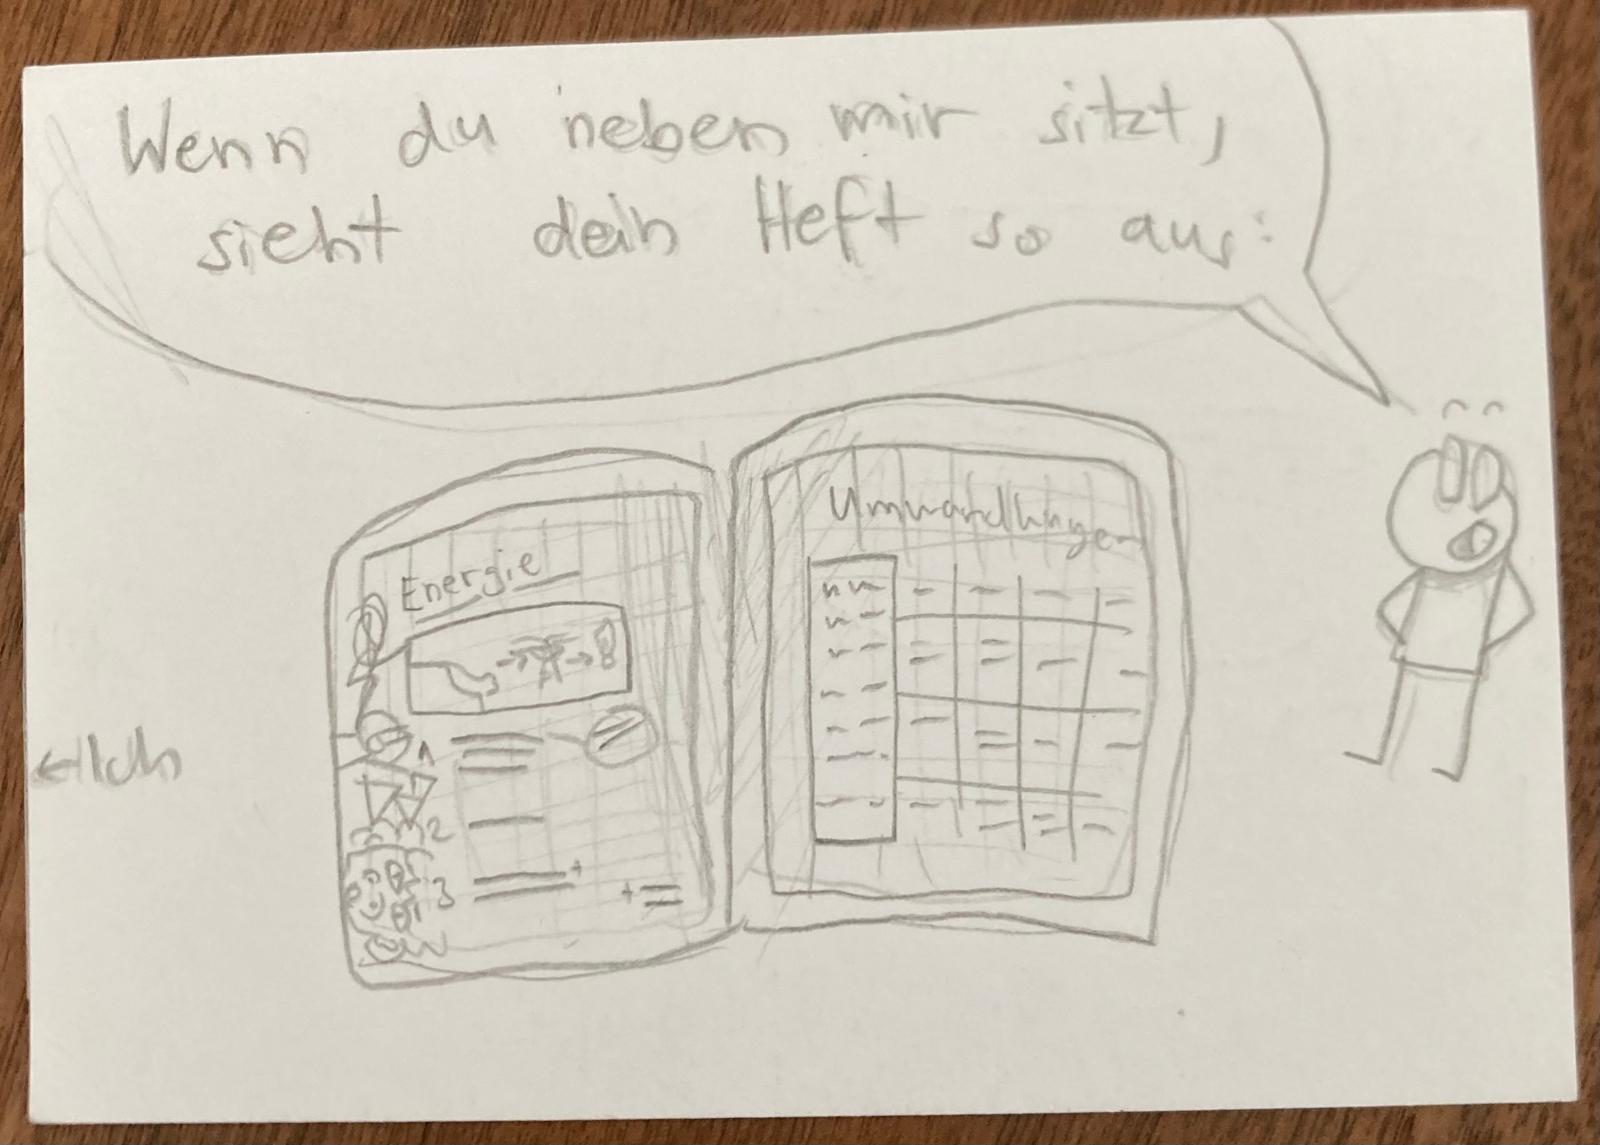 Wenn du neben mir sitzt,
sieht dein Heft so aus:
Energie
1
2
3
Umwandlungen
←Ich